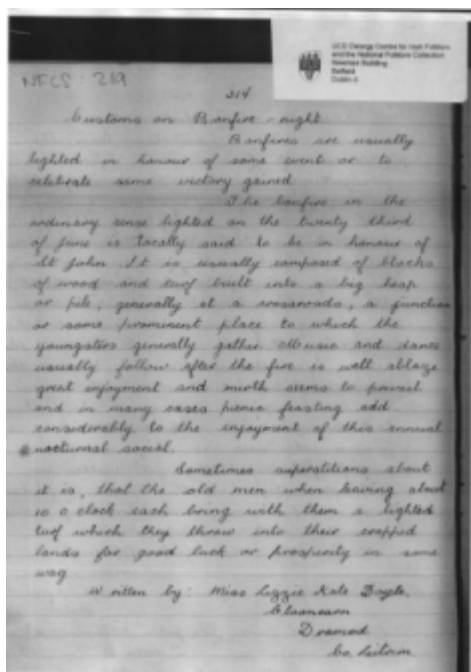 UCD Delargy Centre for Irish Folklore
and the National Folklore Collection
Newman Building
Belfield
Dublin 4
NFCS : 219
214
Customs on Bonfire-night
Bonfires are usually
lighted in honour of some event or to
celebrate some victory gained
The bonfire in the
ordinary sense lighted on the twenty third
of June is locally said to be in honour of
St John. It is usually composed of blocks
of wood and turf built into a big heap
or pile, generally at a crossroads, a junction
or some prominent place to which the
youngsters generally gather. Music and dance
usually follow after the fire is well ablaze
great enjoyment and mirth seems to prevail
and in many cases picnic feasting add
considerably to the enjoyment of this annual
nocturnal social.
Sometimes superstitions about
it is, that the old men when leaving about
10 o clock each bring with them a lighted
turf which they throw into their cropped
lands for good luck or prosperity in some
way
Written by: Miss Lizzie Kate Doyle,
Dromod
Co. Leitrim